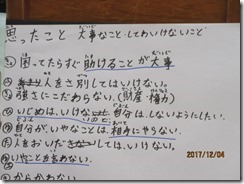 思ったこと 大事なこと・してわいけないこと
困ってたらすぐ助けることが大事
人をさ別してはいけない。
強さにこだわらない。(財産・権力)
いじめは、いけない 自分は、しないようにしたい。
自分が、いやなことは、相手にやらない。
人をおいだしては、いけない。
いやことを言わない。
からかわない
2017/12/04